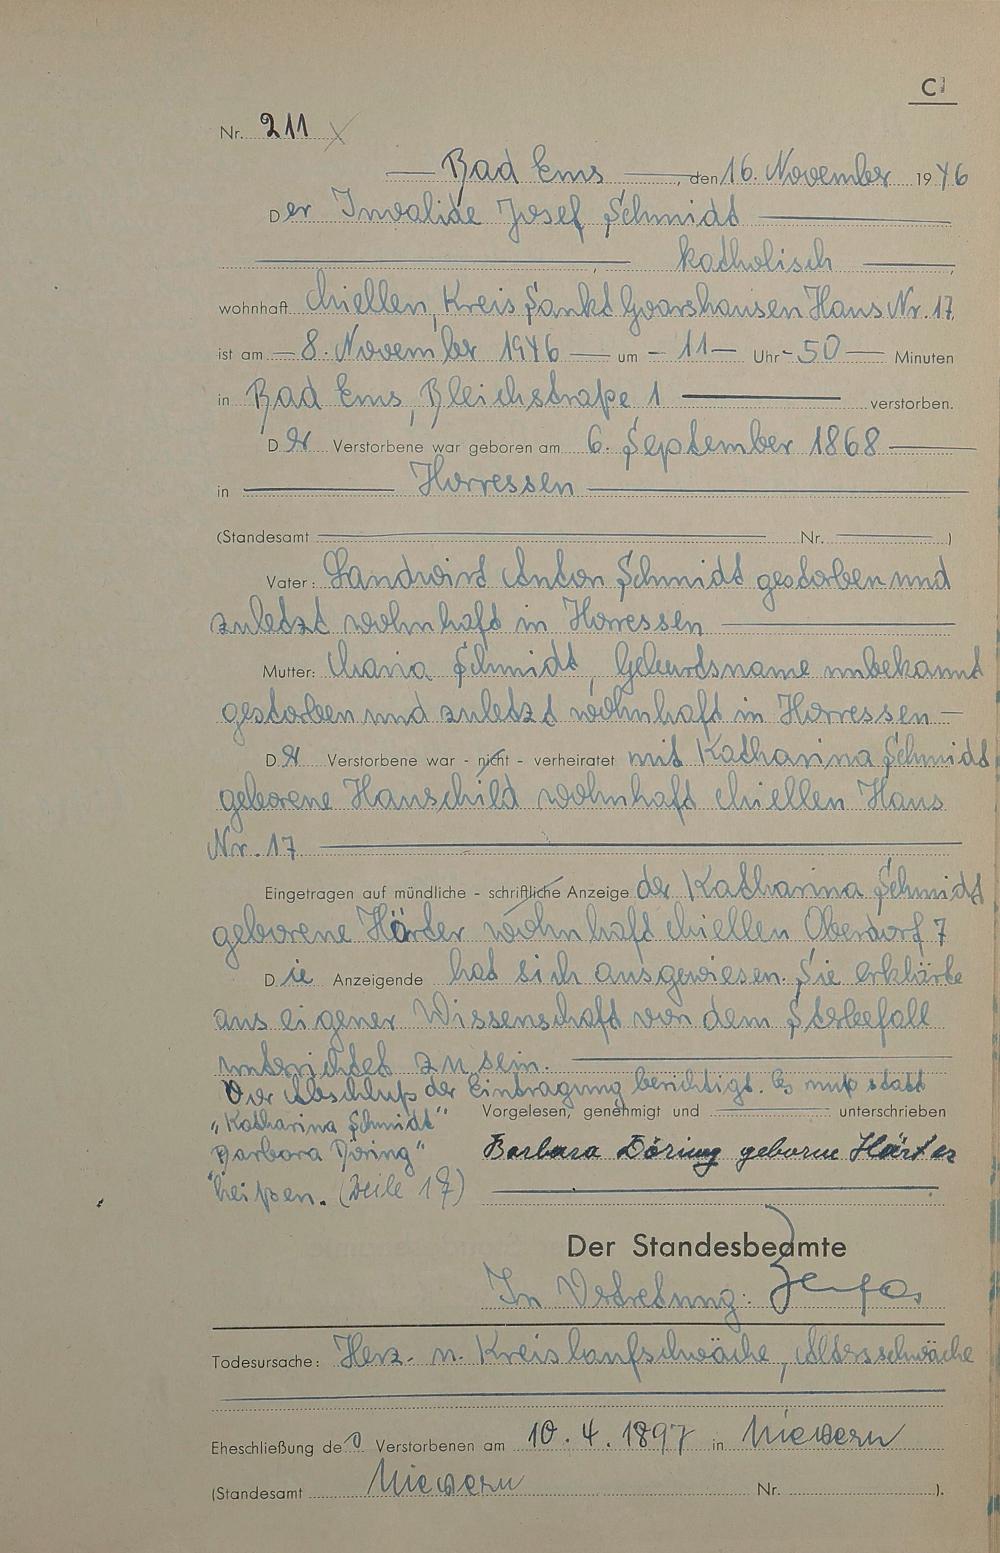 C
Nr. 211
Bad Ems, den 16. November 1946
Der Invalide Josef Schmidt
, katholisch ,
wohnhaft Miellen, Kreis Sankt Goarshausen Haus Nr. 17
ist am 8. November 1946 um 11 Uhr 50 Minuten
in Bad Ems, Bleichstraße 1 verstorben.
Der Verstorbene war geboren am 6. September 1868
in Horressen
(Standesamt Nr. )
Vater: Landwirt Anton Schmidt gestorben und
zuletzt wohnhaft in Horressen
Mutter: Maria Schmidt, Geburtsname unbekannt
gestorben und zuletzt wohnhaft in Horressen
Der Verstorbene war - nicht - verheiratet mit Katharina Schmidt
geborene Hauschild wohnhaft Miellen Haus
Nr. 17
Eingetragen auf mündliche - schriftliche Anzeige der Katharina Schmidt
geborene Härter wohnhaft Miellen Oberdorf 7
Die Anzeigende hat sich ausgewiesen. Sie erklärte
aus eigener Wissenschaft von dem Sterbefall
unterrichtet zu sein.
Vor Abschluß der Eintragung berichtigt. Es muß statt
„Katharina Schmidt"
Barbara Döring"
heißen. (Zeile 17)
Vorgelesen, genehmigt und unterschrieben
Barbara Döring geborne Härter
Der Standesbeamte
In Vertretung:
Todesursache: Herz- u. Kreislaufschwäche, Altersschwäche
Eheschließung de Verstorbenen am 10.4.1897 in Nievern
(Standesamt Nievern Nr. ).